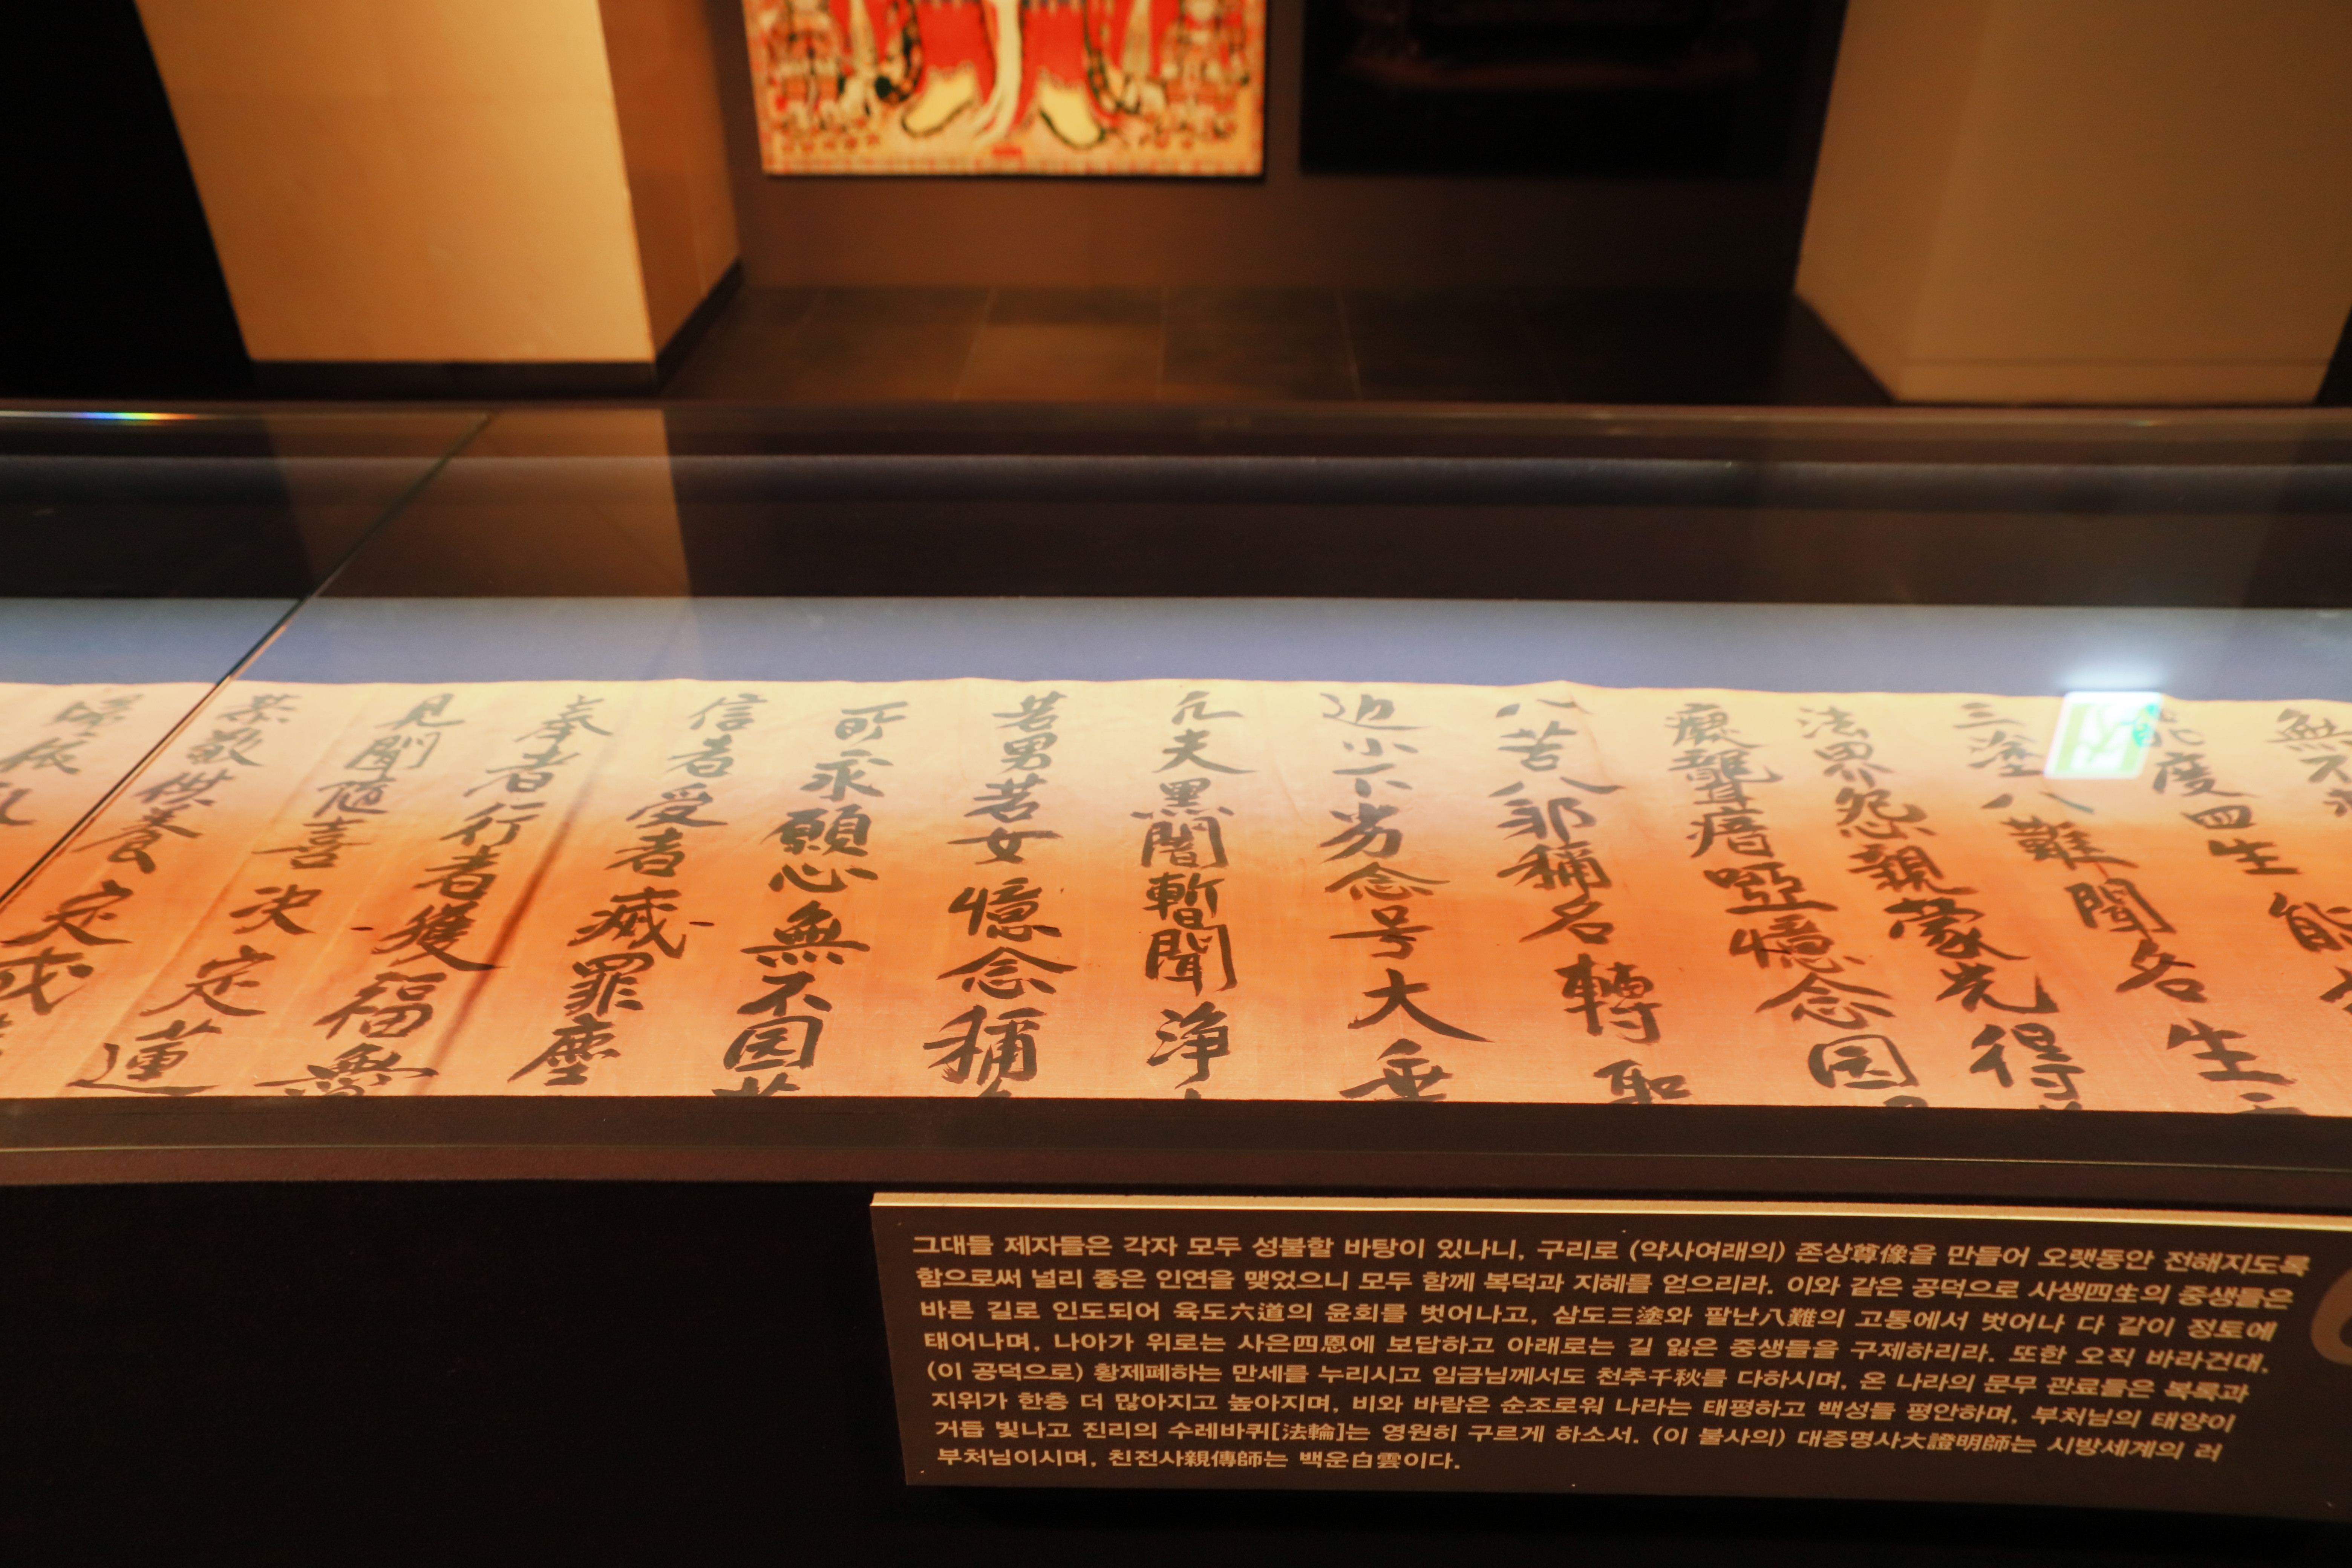 無
能度四生
三塗八難聞名生
法界怨親蒙光得
癡聾瘖啞憶念因
八苦八邪稱名轉聖
近小下劣念号大乗
凢夫黒闇暫聞浄
苦男苦女憶念稱
可求願心無不因
信者受者滅罪塵
奉者行者獲福
見聞隨喜決定
恭敬供養定蓮
그대들 제자들은 각자 모두 성불할 바탕이 있나니, 구리로 (약사여래의) 존상尊像을 만들어 오랫동안 전해지도록
함으로써 널리 좋은 인연을 맺었으니 모두 함께 복덕과 지혜를 얻으리라. 이와 같은 공덕으로 사생四生의 중생들은
바른 길로 인도되어 육도六道의 윤회를 벗어나고, 삼도三塗와 팔난八難의 고통에서 벗어나 다 같이 정토에
태어나며, 나아가 위로는 사은四恩에 보답하고 아래로는 길 잃은 중생들을 구제하리라. 또한 오직 바라건대,
(이 공덕으로) 황제폐하는 만세를 누리시고 임금님께서도 천추千秋를 다하시며, 온 나라의 문무 관료들은 복록과
지위가 한층 더 많아지고 높아지며, 비와 바람은 순조로워 나라는 태평하고 백성들 평안하며, 부처님의 태양이
거듭 빛나고 진리의 수레바퀴[法輪]는 영원히 구르게 하소서. (이 불사의) 대증명사大證明師는 시방세계의 러
부처님이시며, 친전사親傳師는 백운白雲이다.